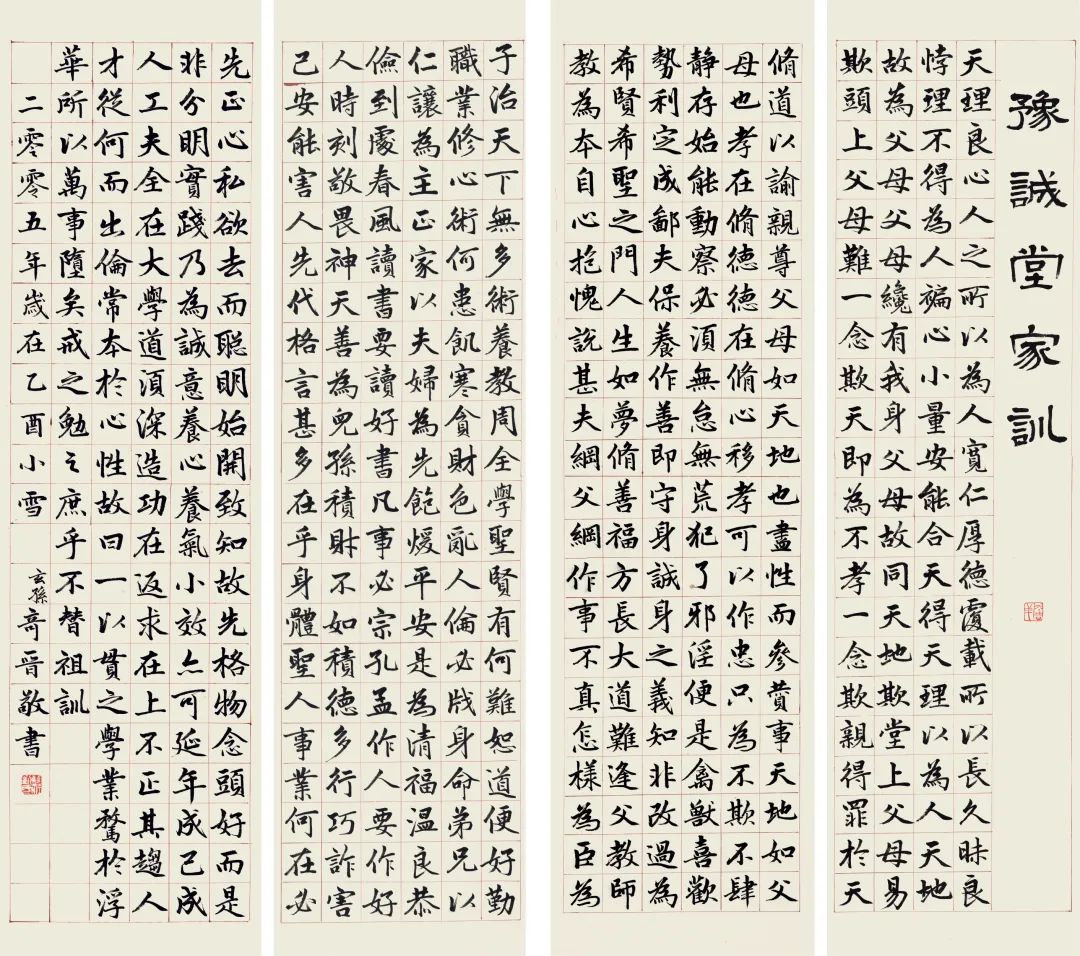 豫誠堂家訓
天理良心人之所以為人寬仁厚德覆載所以長久昧良
悖理不得為人褊心小量安能合天得天理以為人天地
故為父母父母纔有我身父母故同天地欺堂上父母易
欺頭上父母難一念欺天即為不孝一念欺親得罪於天
脩道以諭親尊父母如天地也盡性而參贊事天地如父
母也孝在脩德德在脩心移孝可以作忠只為不欺不肆
靜存始能動察必須無怠無荒犯了邪淫便是禽獸喜歡
勢利定成鄙夫保養作善即守身誠身之義知非改過為
希賢希聖之門人生如夢脩善福方長大道難逢父教師
教為本自心抱愧說甚夫綱父綱作事不真怎樣為臣為
子治天下無多術養教周全學聖賢有何難恕道便好勤
職業修心術何患飢寒貪財色亂人倫必戕身命弟兄以
仁讓為主正家以夫婦為先飽煖平安是為清福溫良恭
儉到處春風讀書要讀好書凡事必宗孔孟作人要作好
人時刻敬畏神天善為兒孫積財不如積德多行巧詐害
己安能害人先代格言甚多在乎身體聖人事業何在必
先正心私欲去而聰明始開致知故先格物念頭好而是
非分明實踐乃為誠意養心養氣小效亦可延年成己成
人工夫全在大學道須深造功在返求在上不正其趨人
才從何而出倫常本於心性故曰一以貫之學業騖於浮
華所以萬事墮矣戒之勉之庶乎不替祖訓
二零零五年歲在乙酉小雪 玄孫奇晋敬書